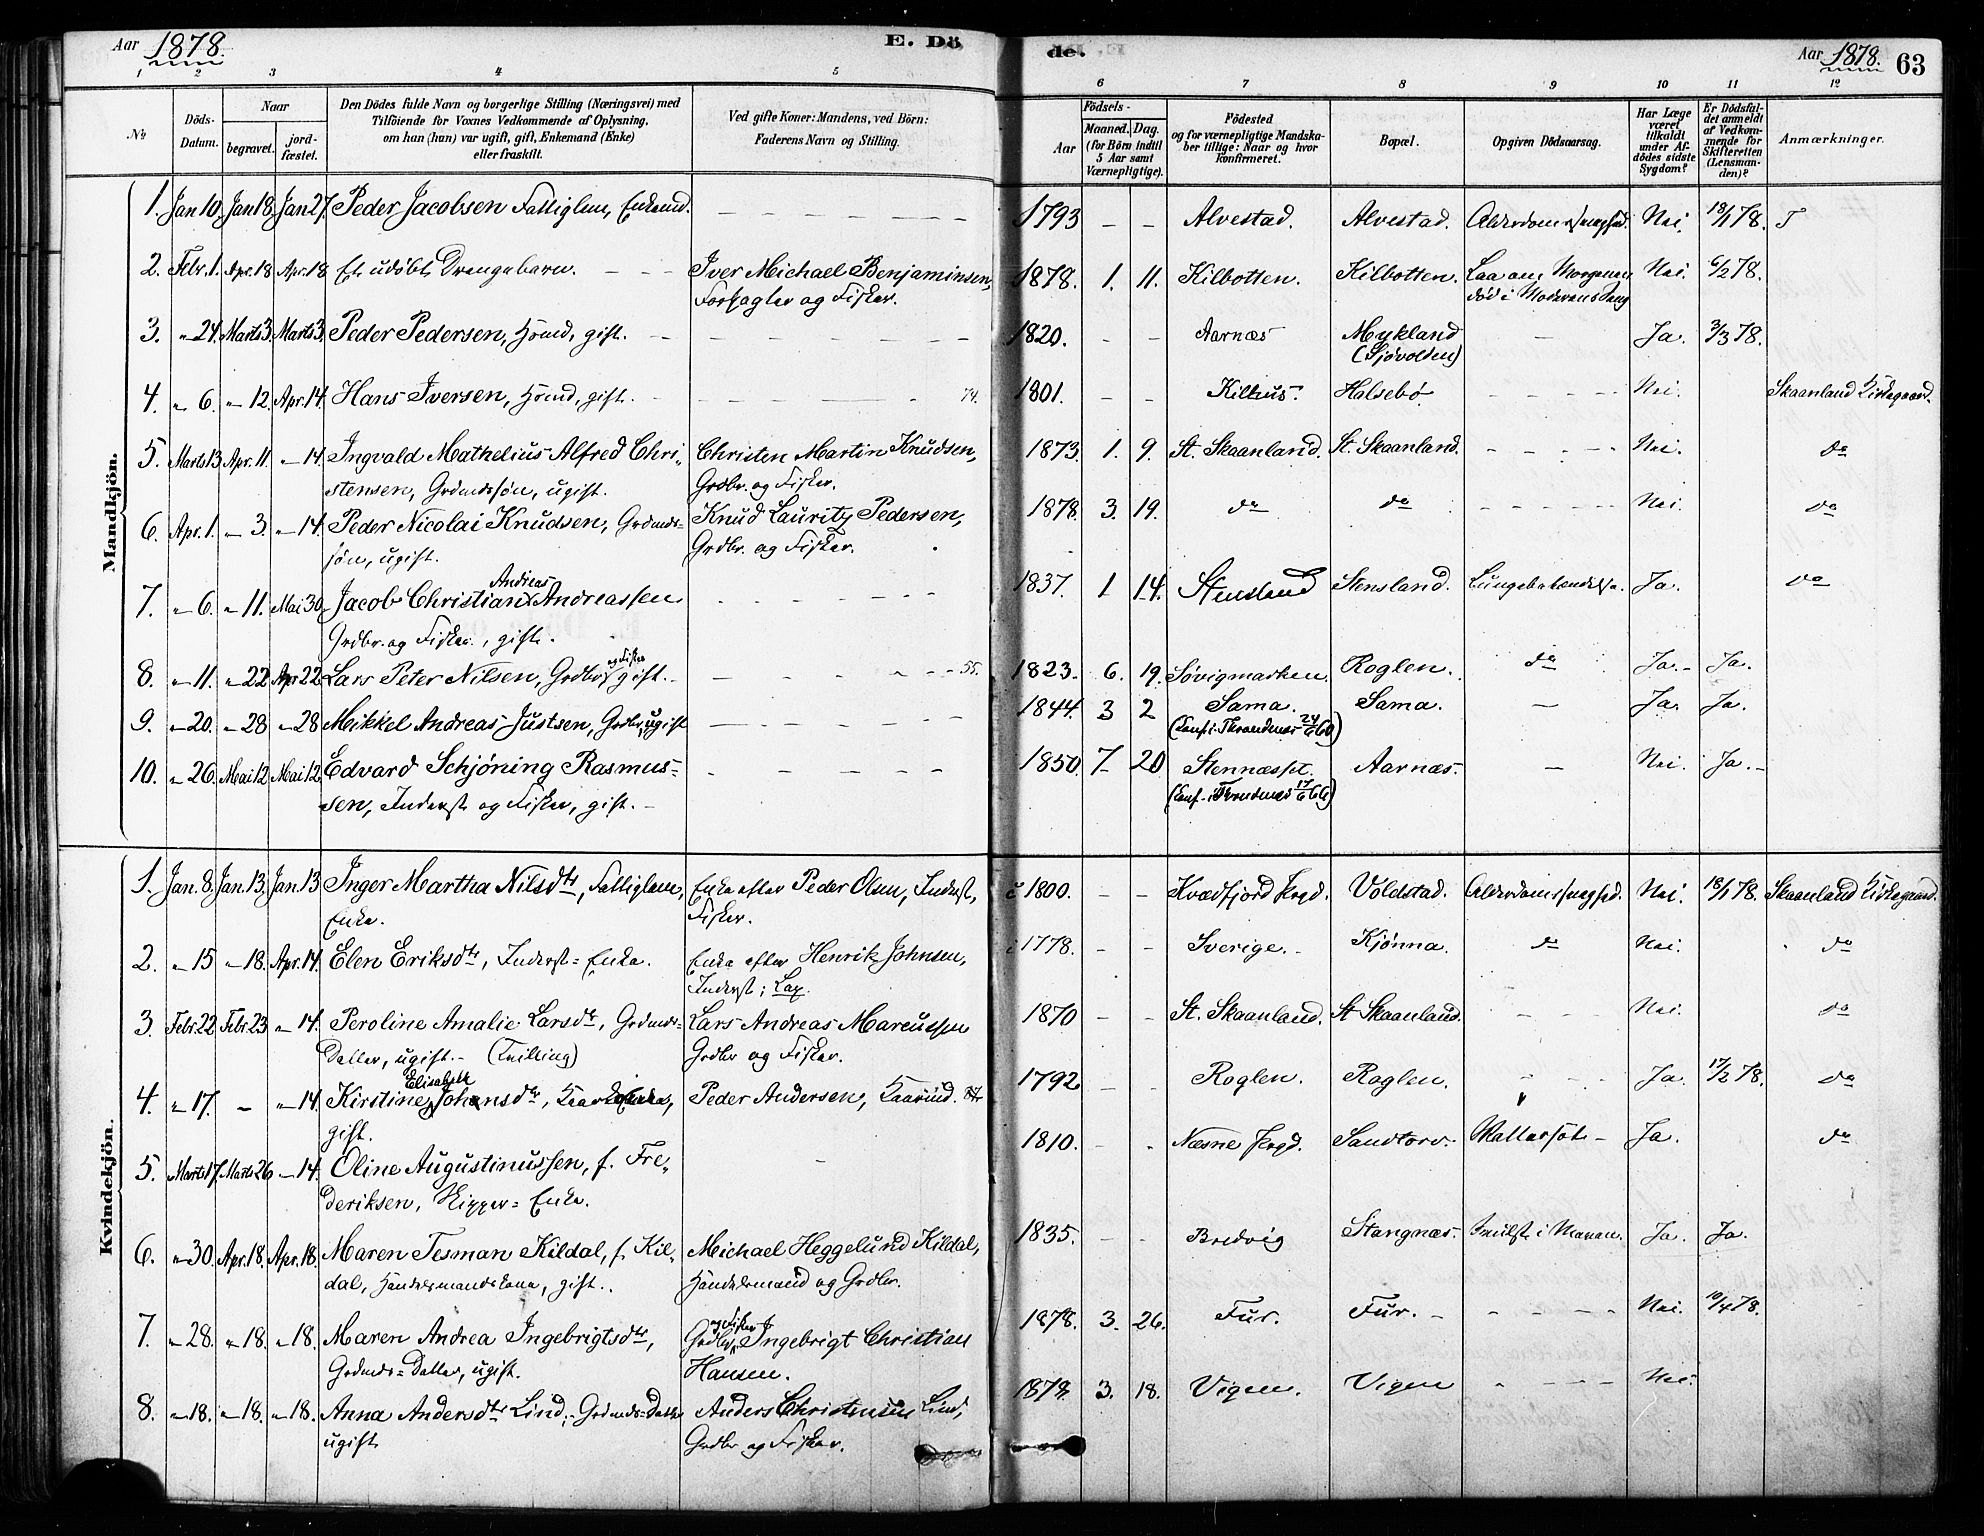 Aar 1878. E. Dö
1 2 3 4 5
No
Döds-
Datum.
Naar
begravet.
jord-
fæstet.
Den Dödes fulde Navn og borgerlige Stilling (Næringsvei) med
Tilföiende for Voxnes Vedkommende af Oplysning,
om han (hun) var ugift, gift, Enkemand (Enke)
eller fraskilt.
Ved gifte Koner: Mandens, ved Börn:
Faderens Navn og Stilling.
Mandkjön.
1. Jan 10. Jan 18. Jan 27. Peder Jacobsen Fattiglem, Enkemd.
2. Febr. 1. Apr. 18 Apr. 18 Et udøbt Drengebarn. Iver Michael Benjaminsen,
og Fisker.
3. " 24. Marts 3. Marts 3. Peder Pedersen, gift.
4. " 6. " 12. Apr. 14. Hans Iversen, gift. 74.
5. Marts 13. Apr. 11. " 14. Ingvald Mathelius Alfred Chri- Christen Martin Knudsen,
stensen, Grdmdssøn, ugift. Grdbr. og Fisker.
6. Apr. 1. " 3. " 14. Peder Nicolai Knudsen, Grdmds= Knud Lauritz Pedersen,
søn, ugift. Grdbr. og Fisker.
Andreas
7. " 6. " 11. Mai 30. Jacob Christian Andreassen
Grdbr. og Fisker, gift.
og Fisker
8. " 11. " 22 Apr 22 Lars Peter Nilsen, Grdbr. gift. 55.
9. " 20. " 28 " 28 Mikkel Andreas Justsen, Grdbr, ugift
10. " 26. Mai 12. Mai 12. Edvard Schjöning Rasmus=
sen, Inderst og Fisker, gift.
Kvindekjön.
1. Jan. 8. Jan. 13. Jan. 13 Inger Martha Nilsdtr, Fattiglem, Enke efter Peder Olsen, Inderst,
Enke. Fisker.
2. " 15 " 18. Apr. 14. Elen Eriksdtr, Inderst=Enke. Enke efter Henrik Johnsen,
Inderst; Lap.
3. Febr. 22. Febr. 23 " 14. Peroline Amalie Larsdtr, Grdmds= Lars Andreas Marcussen
Datter, ugift. (Tvilling) Grdbr og Fisker.
Elisabeth
4. " 17. - " 14. Kirstine Johansdtr, Peder Andersen, Kaarmd.
gift.
5. Marts 17. Marts 26 " 14. Oline Augustinussen, f. Fre-
deriksen, Skipper=Enke.
6. " 30. Apr. 18. Apr. 18. Maren Tesman Kildal, f. Kil- Michael Heggelund Kildal,
dal, Handelsmandskone, gift. Handelsmand og Grdbr.
og Fisker
7. " 28. " 18. " 18. Maren Andrea Ingebrigtsdtr, Grdbr. Ingebrigt Christian
Grdmds=Datter, ugift. Hansen.
8. " 18. " 18. " 18. Anna Andersdtr Lind, Grdmds=Datter Anders Christensen Lind,
ugift Grdbr og Fisker.
de. Aar 1878. 63
6 7 8 9 10 11 12
Födsels-
Aar
Maaned. Dag.
(for Börn indtil
5 Aar samt
Værnepligtige).
Födested
og for værnepligtige Mandska-
ber tillige: Naar og hvor
konfirmeret.
Bopæl.
Opgiven Dödsaarsag.
Har Læge
været
tilkaldt
under Af-
dödes sidste
Sygdom?
Er Dödsfal-
det anmeldt
af Vedkom-
mende for
Skifteretten
(Lensman-
den)?
Anmærkninger.
1793 - - Alvestad. Alvestad. Alderdomssvaghed. Nei. 18/1 78. T
1878. 1. 11. Kilbotten. Kilbotten. Laa om Morgenen Nei. 6/2 78.
død i Moderens Seng
1820. - - Aarnæs Mykland - Ja. 3/3 78.
(Sjøvolden)
1801. - - Kilhus. Halsebø Nei. Skaanland Kirkegaard.
1873. 1. 9. St. Skaanland. St. Skaanland. Nei. do
1878. 3. 19. do do Nei. do
1837. 1 14. Stensland Stensland. Lungebetændelse. Ja. do
1823. 6. 19. Søvigmarken. Roglen. do Ja. Ja.
1844. 3 2 Sama. Sama. - Ja. Ja.
(Konf. i Throndenæs 24/6 60)
1850. 7 20. Stennæsset. Aarnæs. - Nei. Ja.
(Konf. i Throndenæs 17/6 66)
c 1800. - - Kvædfjord Prgd. Voldstad. Alderdomssvaghed. Nei. 18/1 78. Skaanland Kirkegaard.
c 1778. - - Sverige. Kjønna. do Nei. do
1870 - - St. Skaanland. St Skaanland. Nei. do
1792 - - Roglen. Roglen. Ja. 17/2 78. do
1810. - - Næsne Prgd. Sandtorv. Vattersot Ja. do
1835. - - Bredvig Stangnæs. Svulst i Maven. Ja. Ja.
1878. 3. 26. Fur. Fur. Nei. 10/4 78.
1878. 3. 18. Vigen. Vigen Nei.